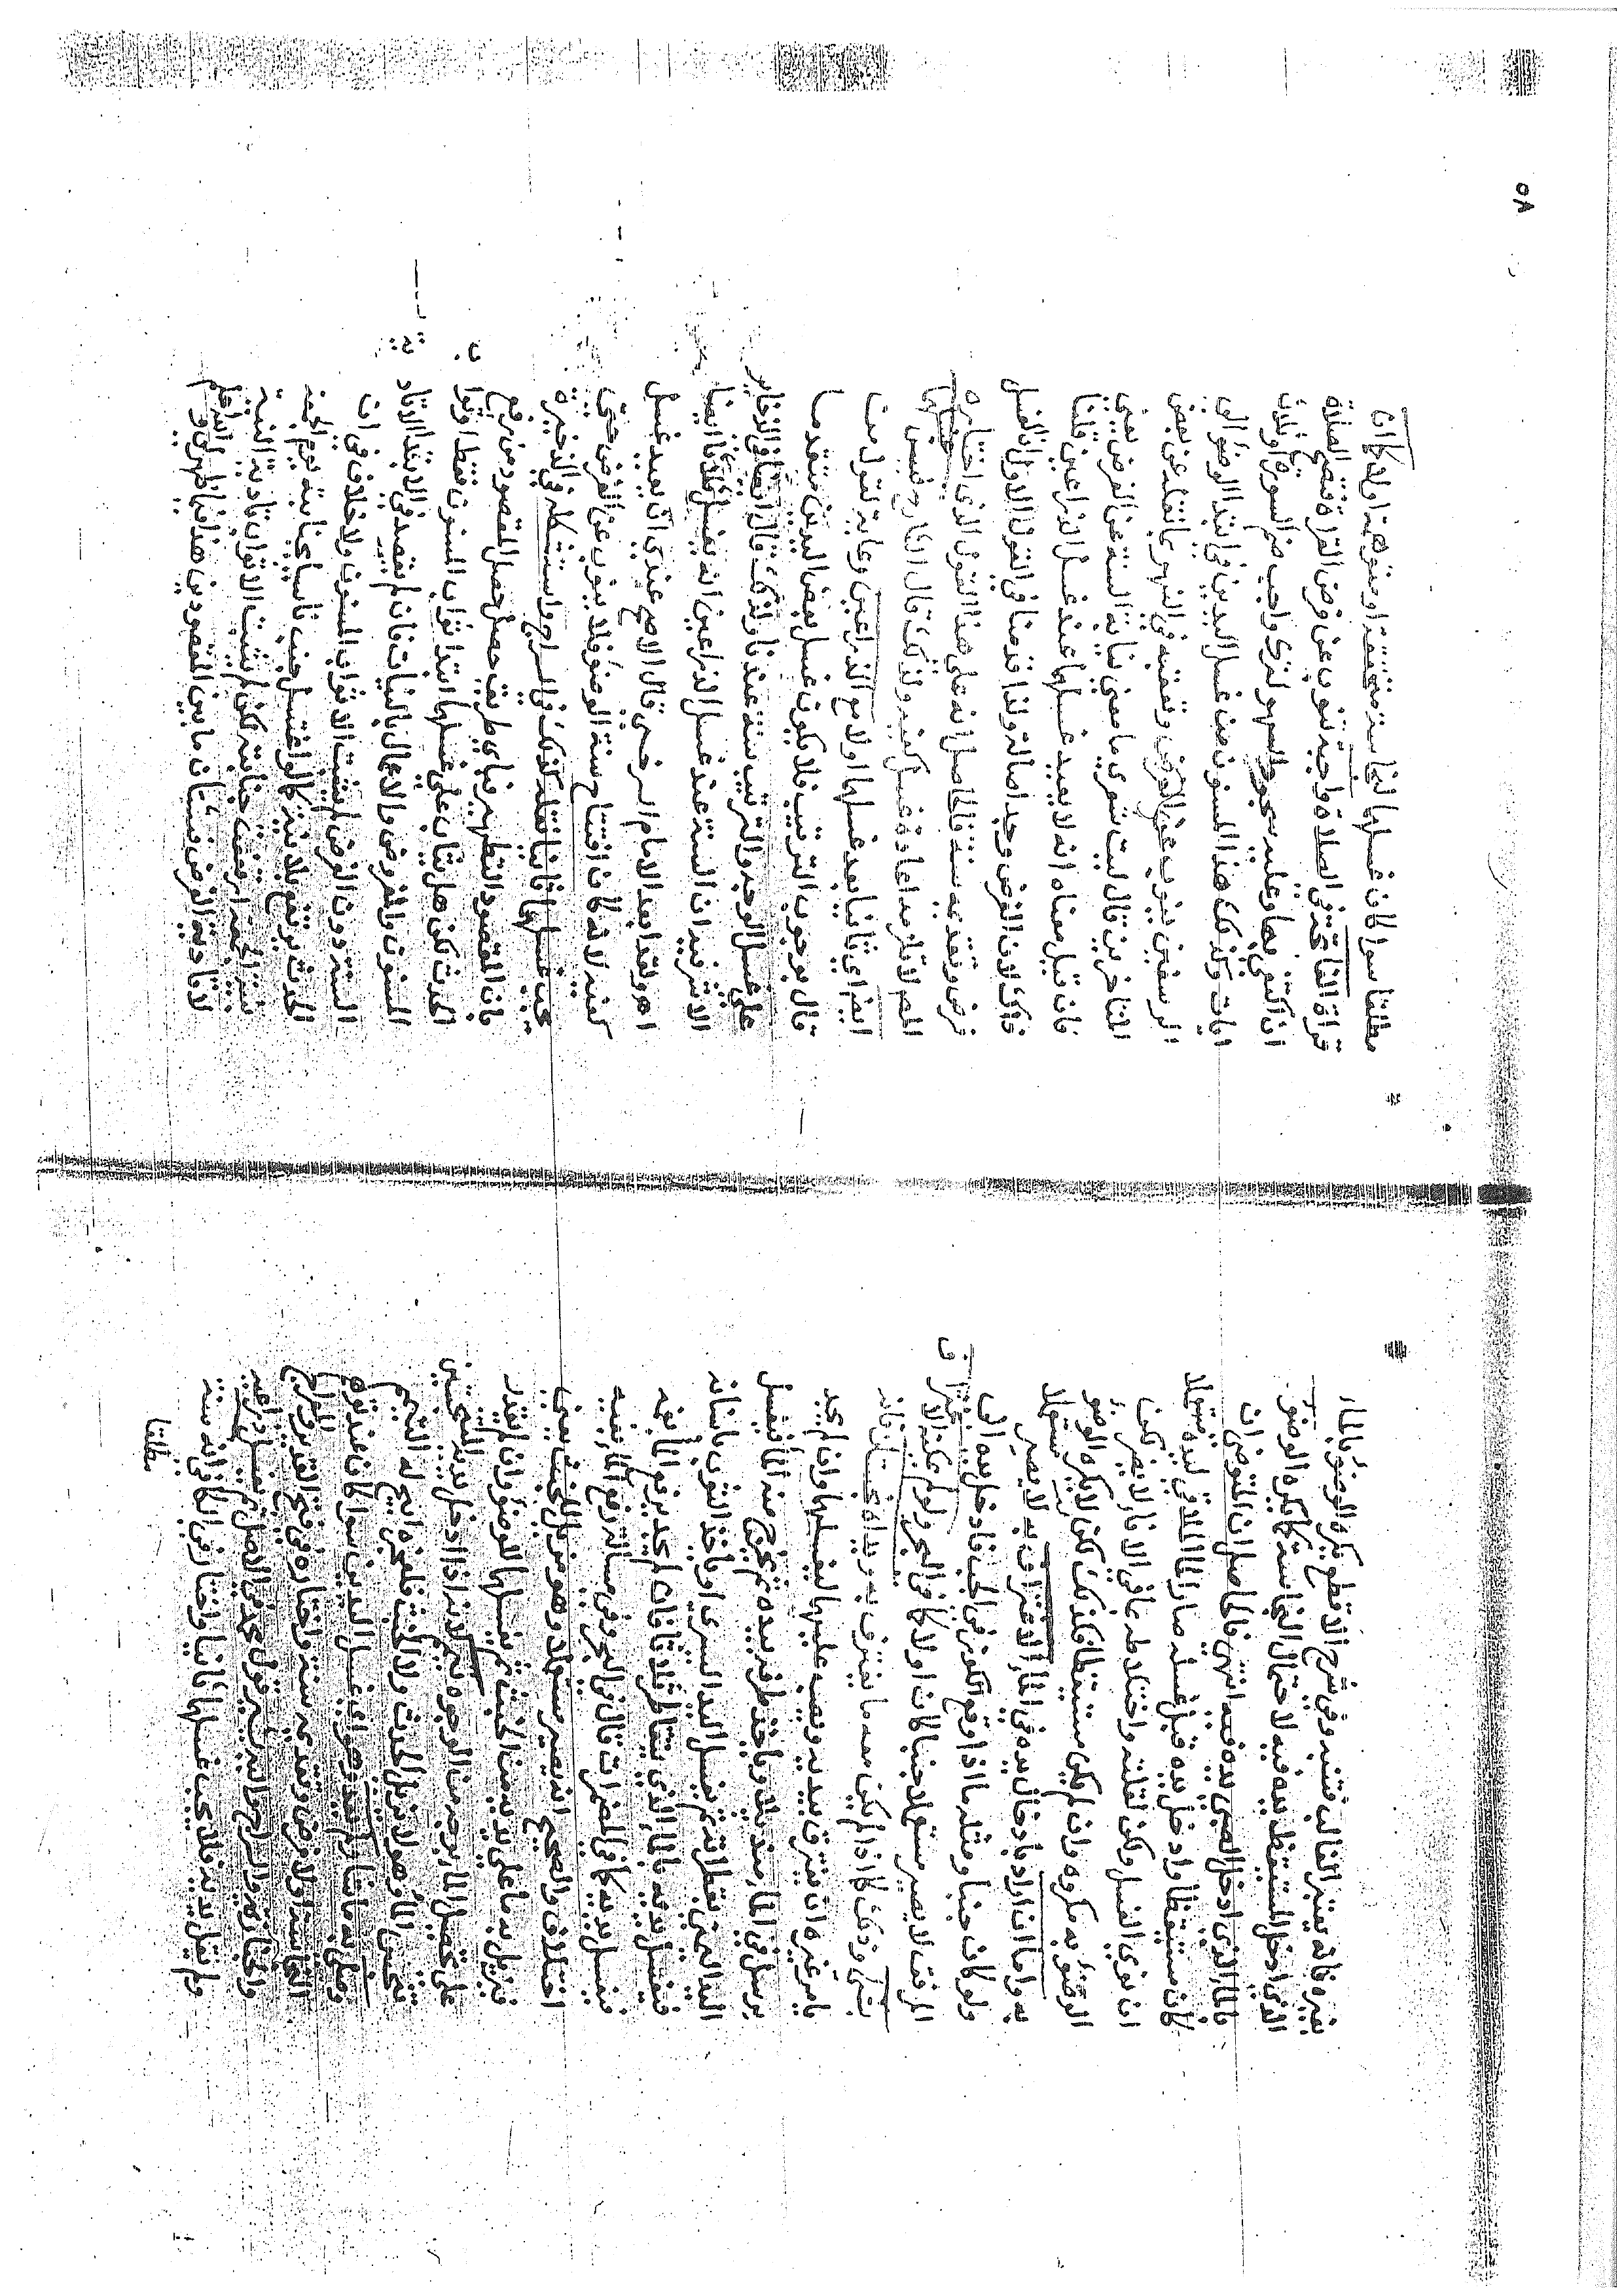 بغيره فانه يعتبر الغالب فتنبه وفي شرح الاقطع يكره الوضوء بالماء
الذي ادخل المستيقظ يده فيه لاحتمال النجاسة كما يكره الوضوء
بالماء الذي ادخل الصبي يده فيه انتهى فالحاصل ان المتوضئ ان
كان مستيقظا وادخل يده قبل غسله صار الماء الملاقي ليده مستعملا
ان نوى الغسل ولكن لقلته واختلاطه بما في الاناء لا يضر لكن
الوضوء به مكروه وان لم يكن مستيقظا فكذلك لكن لا يكره الوضوء
به واما ان اراد بادخال يده في الماء الاغتراف به لا يصير مستعملا
ولو كان جنبا ومثله ما اذا وقع الكوز في الحب فادخل يده الى
المرفق لا يصير مستعملا جنبا كان اولا كما في البحر ولو لم يمكنه الاغتراف
بشئ وذلك كما اذا لم يكن معه ما يغترف به ويداه نجستان فانه
يامر غيره ان يغترق بيديه ويصب عليهما ليغسلهما وان لم يجد
يرسل في الماء منديلا وياخذ طرفه بيده ثم يخرج منه الماء فيغسل
اليد اليمنى بقطراته ثم يغسل اليد اليسرى او ياخذ الثوب باسنانه
فيغسل يديه بالماء الذي يتقاطر ثلاثا فان لم يجد يرفع الماء بفيه
فيغسل يديه كما في المضمرات قال في البحر وفي مسالة رفع الماء بفيه
اختلاف والصحيح انه يصير مستعملا وهو مزيل للخبث يعني
فيزيل به ما على يديه من الخبث ثم يغسلهما للوضوء وان لم يقدر
على تحصيل الماء بوجه من الوجوه تيمم لانه اذا ادخل يديه النجستين
تنجس الماء وهو لا يزيل الحدث ولا الخبث فلعجزه ابيح له التيمم
وصلى به ما شاء ولم يعد وهو اي غسل اليدين سوا كان عند توهم
النجاسة اولا فرض وتقديمه سنة واختاره في فتح القدير والمعراج
والخبازية والسراج والنهر يشير قول محمد في الاصل ثم يغسل ذراعيه
ولم يقل يديه فلا يجب غسلهما ثانيا واختار في الكافي انه سنة
مطلقا
مطلقا سوا كان غسلهما لنجاسة متحققة او متوهمة اولا كما ان
قراة الفاتحة في الصلاة واجبة تنوب عن فرض القراة فتصح الصلاة
ان اكتفى بها وعليه سجود السهو لتركه واجب ضم السورة او ثلاث
ايات وكذلك هذا المسنون من غسل اليدين في ابتداء الوضوء الى
الرسغين ينوب عن الفرض وتعقبه في النهر بما نقله عن بعض
المتاخرين قال ليت شعري ما معنى نيابة السنة عن الفرض يعني
فان قيل معناه انه لا يعيد غسلهما عند غسل الذراعين قلنا
ذاك لان الفرض وجد اصالة ولذا قدمنا في القول الاول ان الغسل
فرض وتقديمه سنة فالحاصل انه على هذا القول الذي اختاره
المصـ لا تلزمه اعادة غسل كفيه ولذلك قال الكل وغيره
ايضا اي ثانيا بعد غسلهما اولا مع الذراعين رعاية لقول من
قال بوجوب الترتيب فلا يكون غسل بعض اليدين متقدما
على غسل الوجه والترتيب سنة عندنا ولذلك قال ايضا في الذخاير
الاشرفية ان السنة عند غسل الذراعين انه يغسل كفيه ايضا
اهـ ولقد ابعد الامام السرخسي قال الاصح عندي ان يعيد غسل
كفيه لانه كان افتتاح سنة الوضوء فلا ينوب عن الفرض حتى
يجب غسلهما ثانيا نقله كذلك في السراج واستشكله في الذخيرة
بان المقصود التطهير فباي طريق حصل حصل المقصود من رفع
الحدث لكن هل يثاب على غسلهما ابتداء ثواب المسنون فقط او ثواب
المسنون والمفروض والاعمال بالنيات فان لم يقصد في الابتداء الا اداء
السنة دون الفرض لم يثبت الا ثواب المسنون ولا خلاف في ان
الحدث يرتفع بلا نية كما لو اغتسل جنب ناسيا جنابته يوم الجمعة
لسنة الجمعة ارتفعت جنابته لكن لم يثبت الا ثواب تادية السنة
لا تادية الفرض فشتان ما بين المقصودين هذا فيما ظهر لي ولم